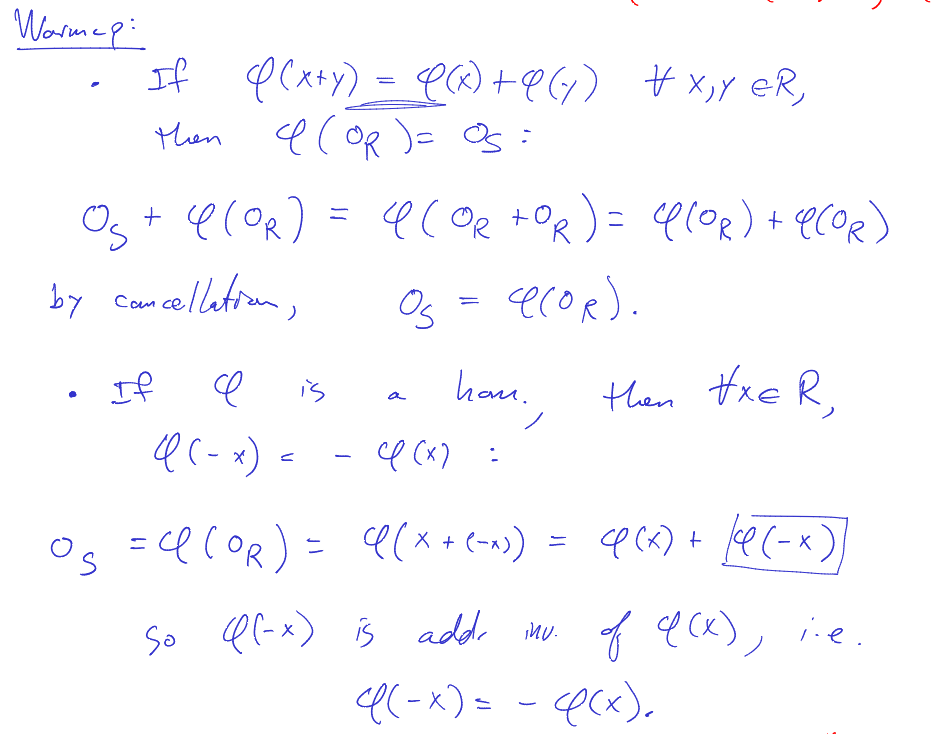 Warmup:
• If φ(x+y) = φ(x) + φ(y) ∀ x,y ∈ R,
then φ(0_R) = 0_S :
0_S + φ(0_R) = φ(0_R + 0_R) = φ(0_R) + φ(0_R)
by cancellation, 0_S = φ(0_R).
• If φ is a hom., then ∀x ∈ R,
φ(-x) = - φ(x) :
0_S = φ(0_R) = φ(x + (-x)) = φ(x) + φ(-x)
so φ(-x) is add. inv. of φ(x), i.e.
φ(-x) = - φ(x).